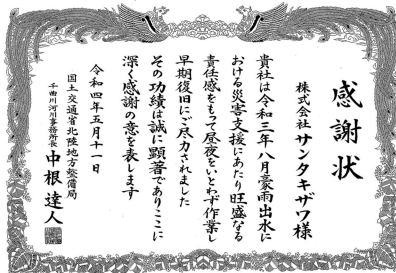 感謝状
株式会社 サンタキザワ様
貴社は令和三年八月豪雨出水に
おける災害支援にあたり旺盛なる
責任感をもって昼夜をいとわず作業し
早期復旧にご尽力されました
その功績は誠に顕著でありここに
深く感謝の意を表します
令和四年五月十一日
国土交通省北陸地方整備局
千曲川河川事務所長 中根達人